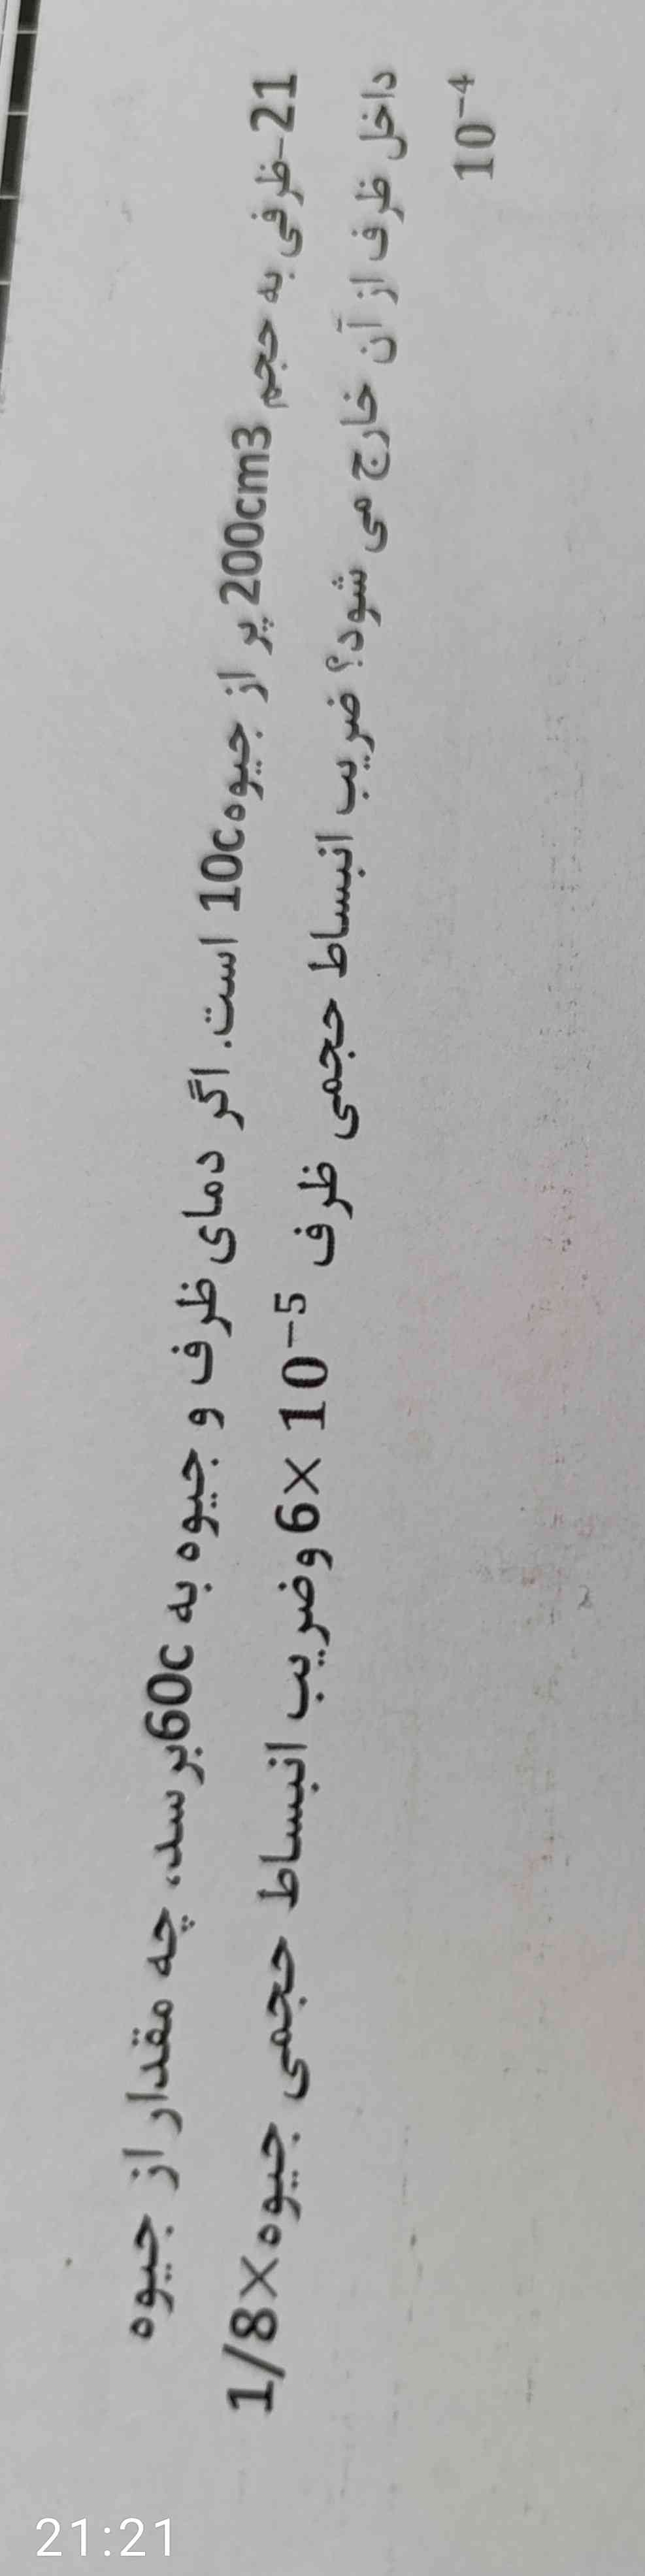 21-ظرفی به حجم 200cm3 پر از جیوه 10c است. اگر دمای ظرف و جیوه به 60c برسد، چه مقدار از جیوه
داخل ظرف از آن خارج می شود؟ ضریب انبساط حجمی ظرف 6× 10⁻⁵ وضریب انبساط حجمی جیوه 1/8×
10⁻⁴
21:21